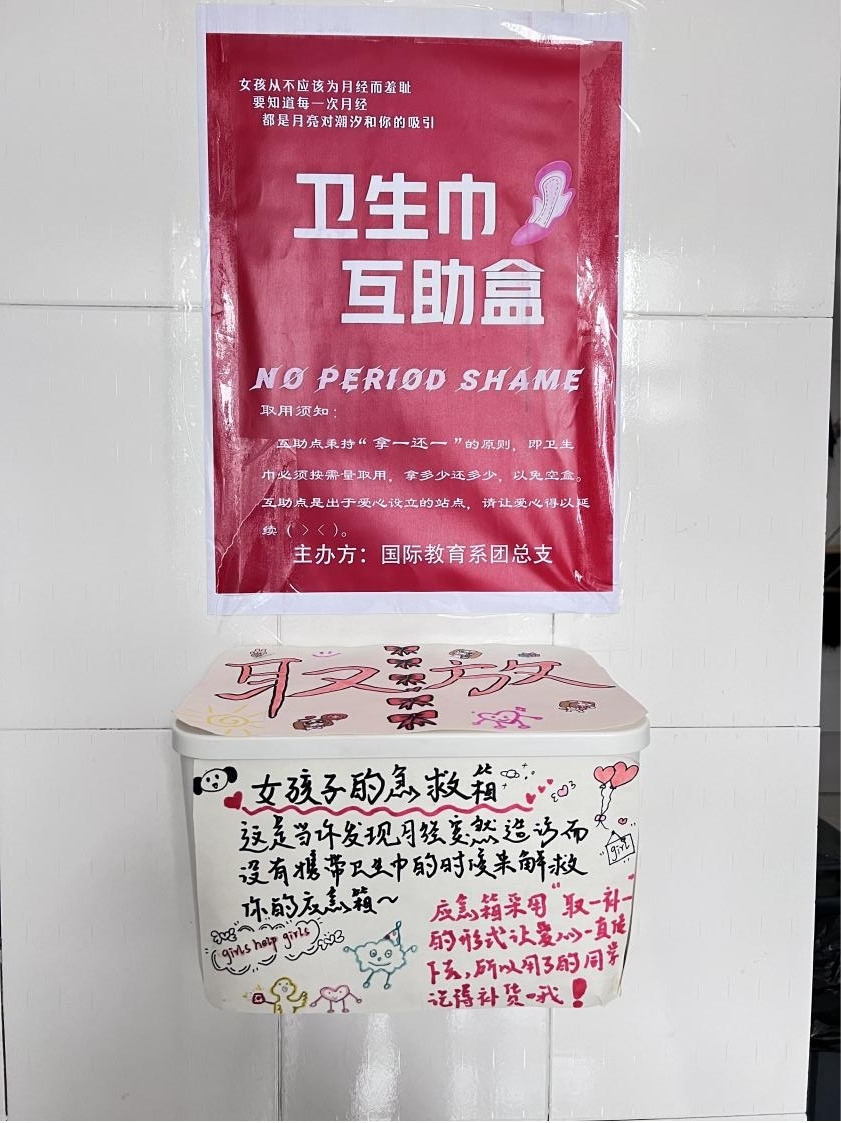 女孩从不应该为月经而羞耻
要知道每一次月经
都是月亮对潮汐和你的吸引
卫生巾
互助盒
NO PERIOD SHAME
取用须知：
互助点秉持“拿一还一”的原则，即卫生
巾必须按需量取用，拿多少还多少，以免空盒。
互助点是出于爱心设立的站点，请让爱心得以延
续（＞＜）。
主办方：国际教育系团总支
取放
女孩子的急救箱
这是当你发现月经突然造访而
没有携带卫生巾的时候来解救
你的应急箱～
girl
girls help girls
应急箱采用“取一补一”
的形式让爱心一直传
下去，所以用了的同学
记得补货哦！